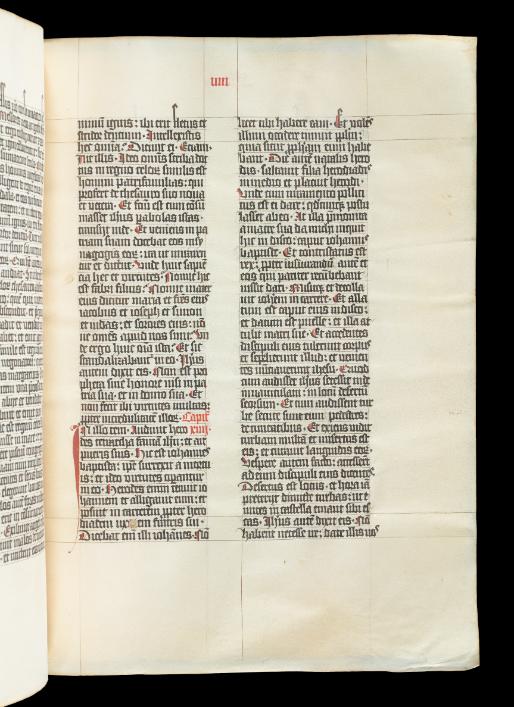 iiii
minū ignis: ibi erit fletus et
stridor dentium. Intellexistis
hec omnia? Dicunt ei. Etiam.
Ait illis. Ideo omīs scriba doc
tus in regno celoꝝ similis est
homini patrifamilias: qui
profert de thesauro suo noua
et vetera. Et fcm̄ est cum cōsū
masset ihūs pabolas istas:
transijt inde. Et veniens in pa
triam suam docebat eos in sy
nagogis eoꝝ: ita ut miraren
tur et dicerēt. Unde huic sapiē
cia hec et virtutes. Nōne hic
est fabri filius? Nōnne mater
eius dicitur maria et frēs eius
iacobus et ioseph et simon
et iudas: et sorores eius: nō
ne omēs apud nos sunt? Un
de ergo huic om̄ia ista? Et sic
scandalizabant̄ in eo. Ihūs
autem dixit eis. Non est pro
pheta sine honore nisi in pa
tria sua: et in domo sua. Et
non fecit ibi virtutes multas:
ꝓpter incredulitatē illoꝝ. Capitl̄
In illo tem. Audiuit hero xiiij.
des tetrarcha famā ihū: et ait
pueris suis. Hic est iohannes
baptista: ipe surrexit a mortu
is: et ideo virtutes operantur
in eo. Herodes enim tenuit io
hannem et alligauit eum: et
posuit in carcerem ꝓpter hero
diadem uxorem fratris sui.
Dicebat em̄ illi iohānes. Nō
licet tibi habere eam. Et volēs
illum occidere timuit pplm̄:
quia sicut ꝓpham eum habe
bant. Die autē natalis hero
dis: saltauit filia herodiadis
in medio et placuit herodi.
Unde cum iuramento pollici
tus est ei dare: qdcūqꝫ postu
lasset ab eo. At illa p̄monita
a matre sua da michi inquit
hic in disco: caput iohannis
baptiste. Et contristatus est
rex: ꝓpter iusiurandū autē et
eos qui pariter recūbebant
iussit dari. Misitqꝫ et decolla
uit iohem in carcere. Et alla
tum est caput eius in disco:
et datum est puelle: et illa at
tulit matri sue. Et accedētes
discipuli eius tulerunt corpus
et sepelierunt illud: et venien
tes nūciauerunt ihesu. Quod
cum audisset ihūs secessit inde
in nauiculam: in locū desertū
seorsum. Et cum audissent tur
be secute sunt eum pedestres:
de ciuitatibus. Et exiens vidit
turbam multā et misertus est
eis: et curauit languidos eoꝝ.
Vespere autem facto: accesserūt
ad eum discipuli eius dicentes.
Desertus est locus: et hora iā
preterijt dimitte turbas: ut e
untes in castella emant sibi es
cas. Ihūs autē dixit eis. Nō
habent necesse ire: date illis vos